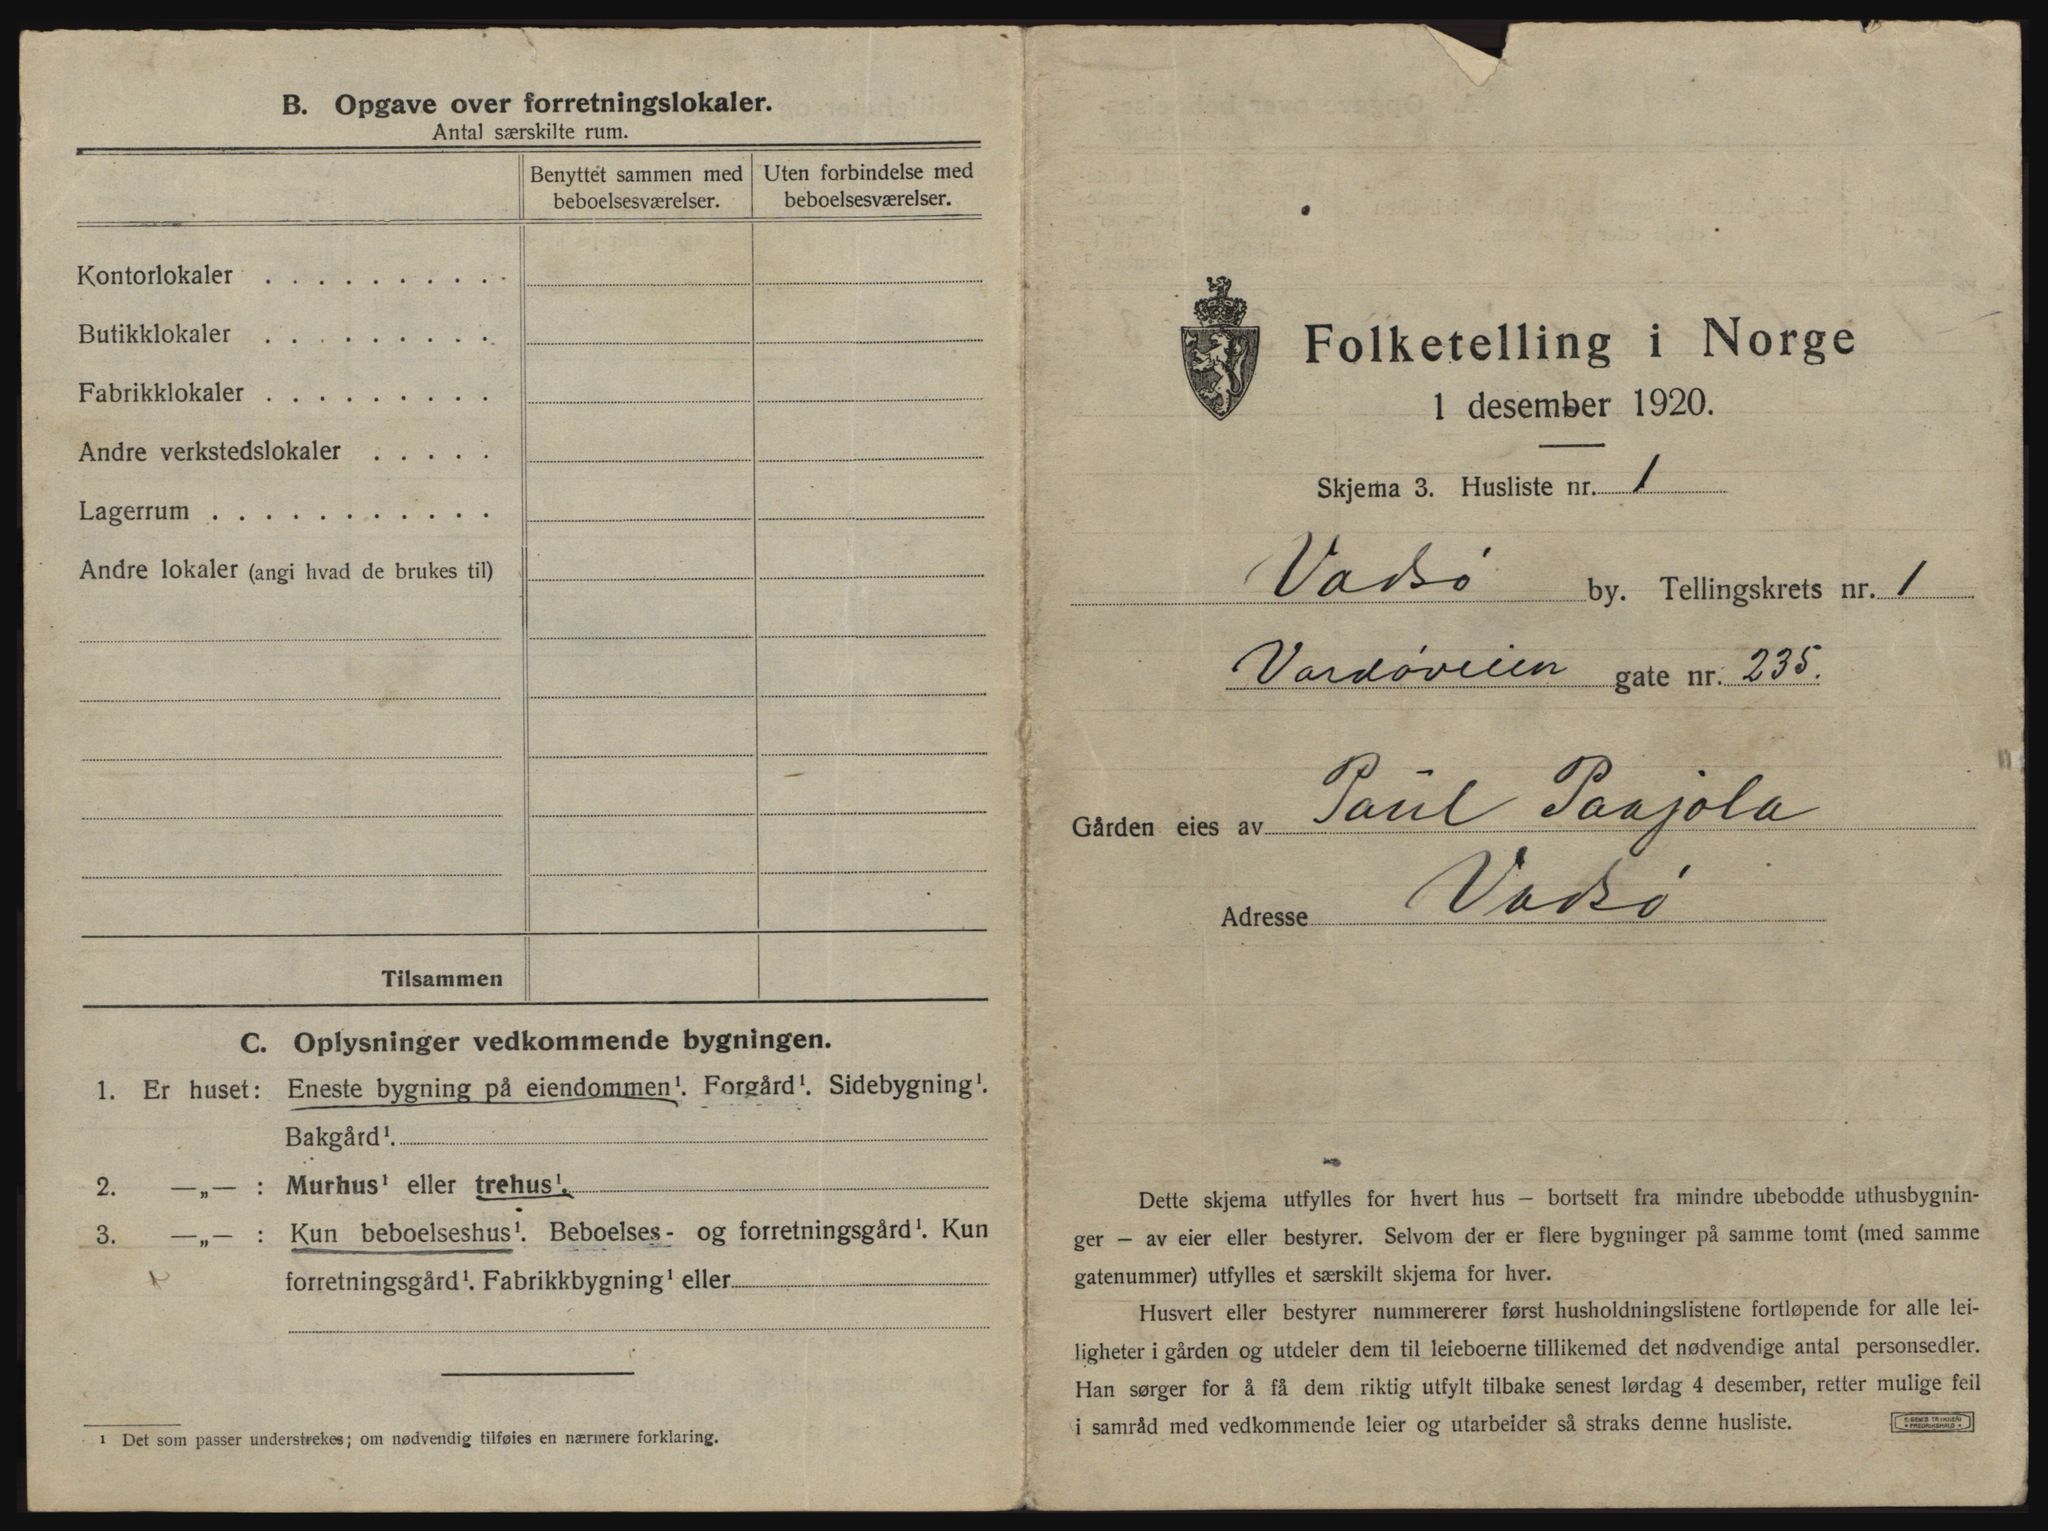 B. Opgave over forretningslokaler.
Antal særskilte rum.
Benyttet sammen med beboelsesværelser.
Uten forbindelse med beboelsesværelser.
Kontorlokaler . . . . . . . . . .
Butikklokaler . . . . . . . . .
Fabrikklokaler . . . . . . . . .
Andre verkstedslokaler . . . . .
Lagerrum . . . . . . . . . . .
Andre lokaler (angi hvad de brukes til)
Tilsammen
C. Oplysninger vedkommende bygningen.
1. Er huset: Eneste bygning på eiendommen¹. Forgård¹. Sidebygning¹.
Bakgård¹.
2. —„— : Murhus¹ eller trehus¹.
3. —„— : Kun beboelseshus¹. Beboelses- og forretningsgård¹. Kun
forretningsgård¹. Fabrikkbygning¹ eller
¹ Det som passer understrekes; om nødvendig tilføies en nærmere forklaring.
Folketelling i Norge
1 desember 1920.
Skjema 3. Husliste nr. 1
Vadsø by. Tellingskrets nr. 1
Vardøveien gate nr. 235.
Gården eies av Paul Paajola
Adresse Vadsø
Dette skjema utfylles for hvert hus – bortsett fra mindre ubebodde uthusbygnin-
ger – av eier eller bestyrer. Selvom der er flere bygninger på samme tomt (med samme
gatenummer) utfylles et særskilt skjema for hver.
Husvert eller bestyrer nummererer først husholdningslistene fortløpende for alle lei-
ligheter i gården og utdeler dem til leieboerne tillikemed det nødvendige antal personsedler.
Han sørger for å få dem riktig utfylt tilbake senest lørdag 4 desember, retter mulige feil
i samråd med vedkommende leier og utarbeider så straks denne husliste.